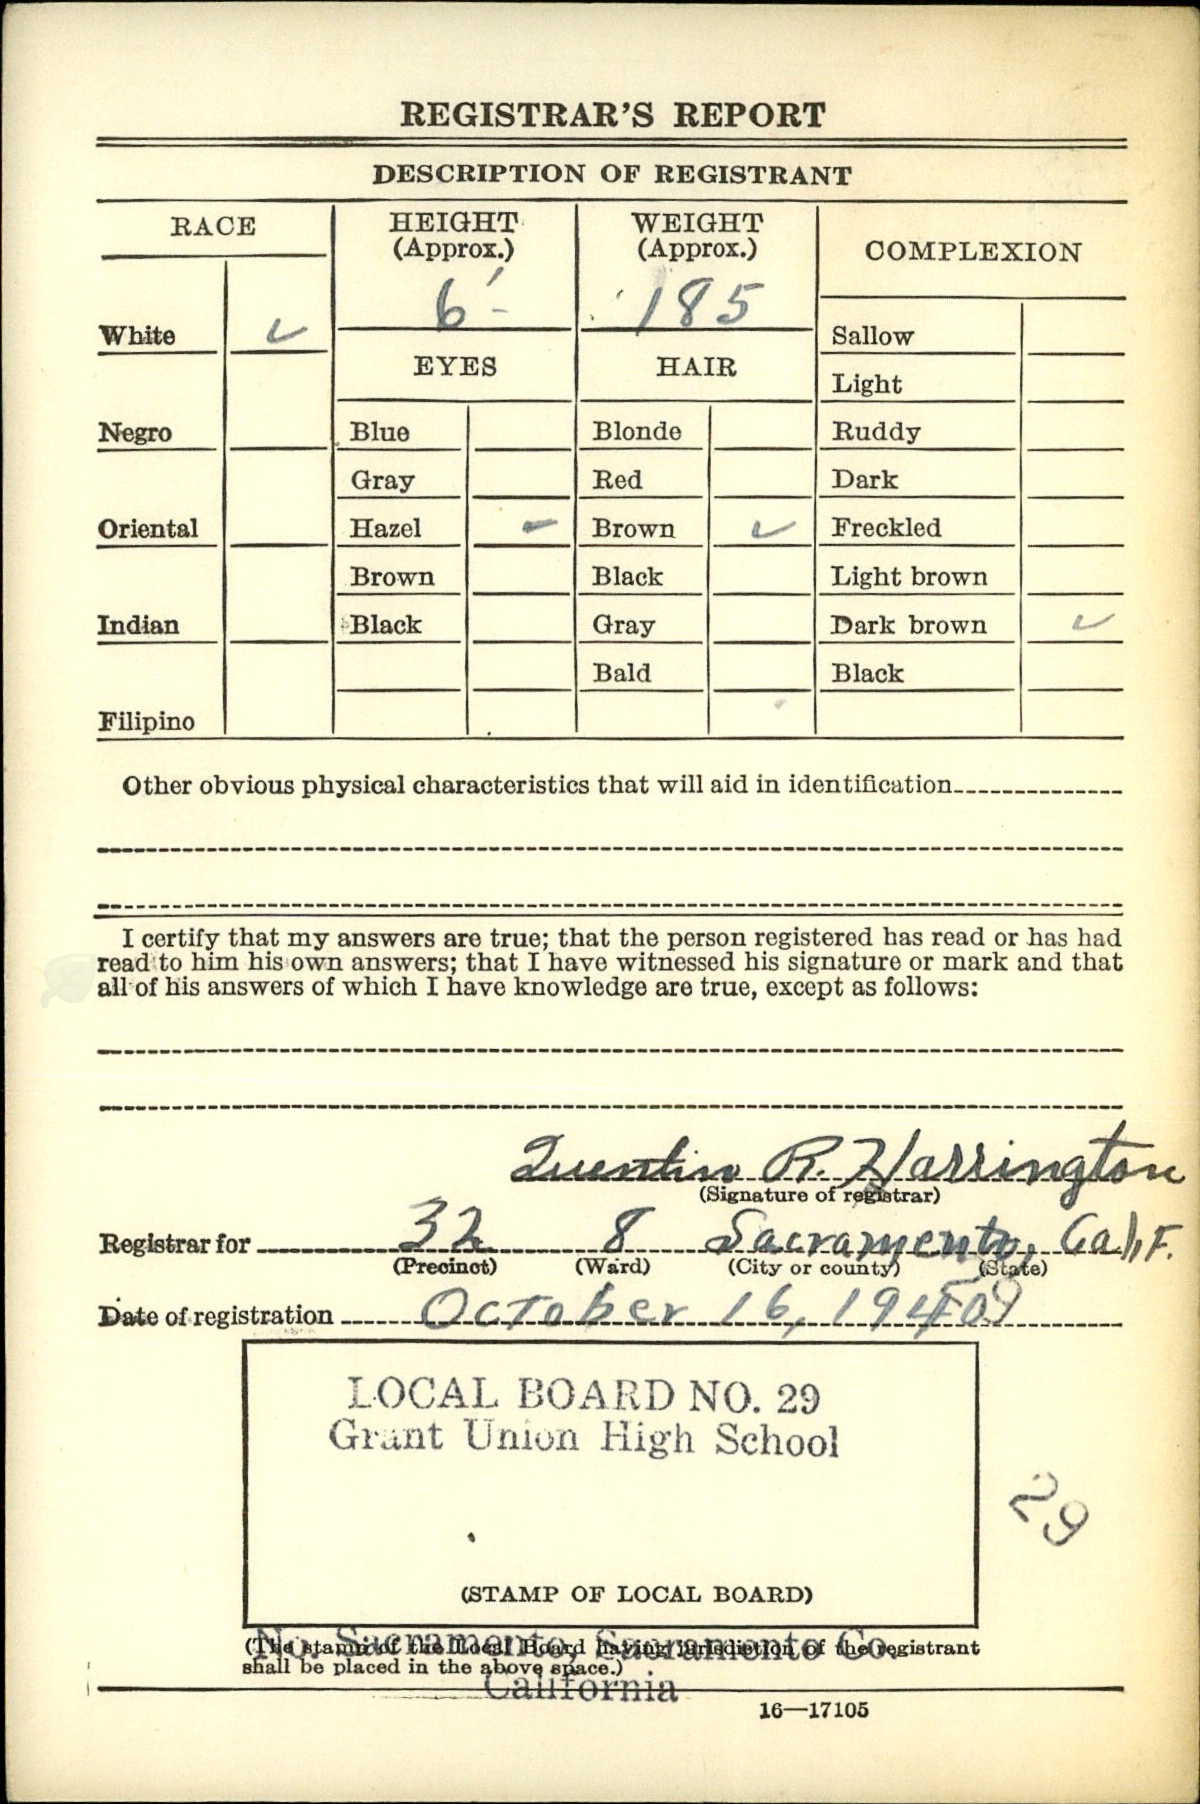 REGISTRAR'S REPORT
DESCRIPTION OF REGISTRANT
RACE
HEIGHT
(Approx.)
WEIGHT
(Approx.)
COMPLEXION
6'-
185
White ✓
EYES
HAIR
Sallow
Light
Negro
Blue
Blonde
Ruddy
Gray
Red
Dark
Oriental
Hazel –
Brown ✓
Freckled
Brown
Black
Light brown
Indian
Black
Gray
Dark brown ✓
Bald
Black
Filipino
Other obvious physical characteristics that will aid in identification
I certify that my answers are true; that the person registered has read or has had
read to him his own answers; that I have witnessed his signature or mark and that
all of his answers of which I have knowledge are true, except as follows:
Quentin R. Harrington
(Signature of registrar)
Registrar for 32 8 Sacramento, Calif.
(Precinct) (Ward) (City or county) (State)
Date of registration October 16, 1940
LOCAL BOARD NO. 29
Grant Union High School
29
(STAMP OF LOCAL BOARD)
No. Sacramento, Sacramento Co.
(The stamp of the Local Board having jurisdiction of the registrant
shall be placed in the above space.)
California
16—17105